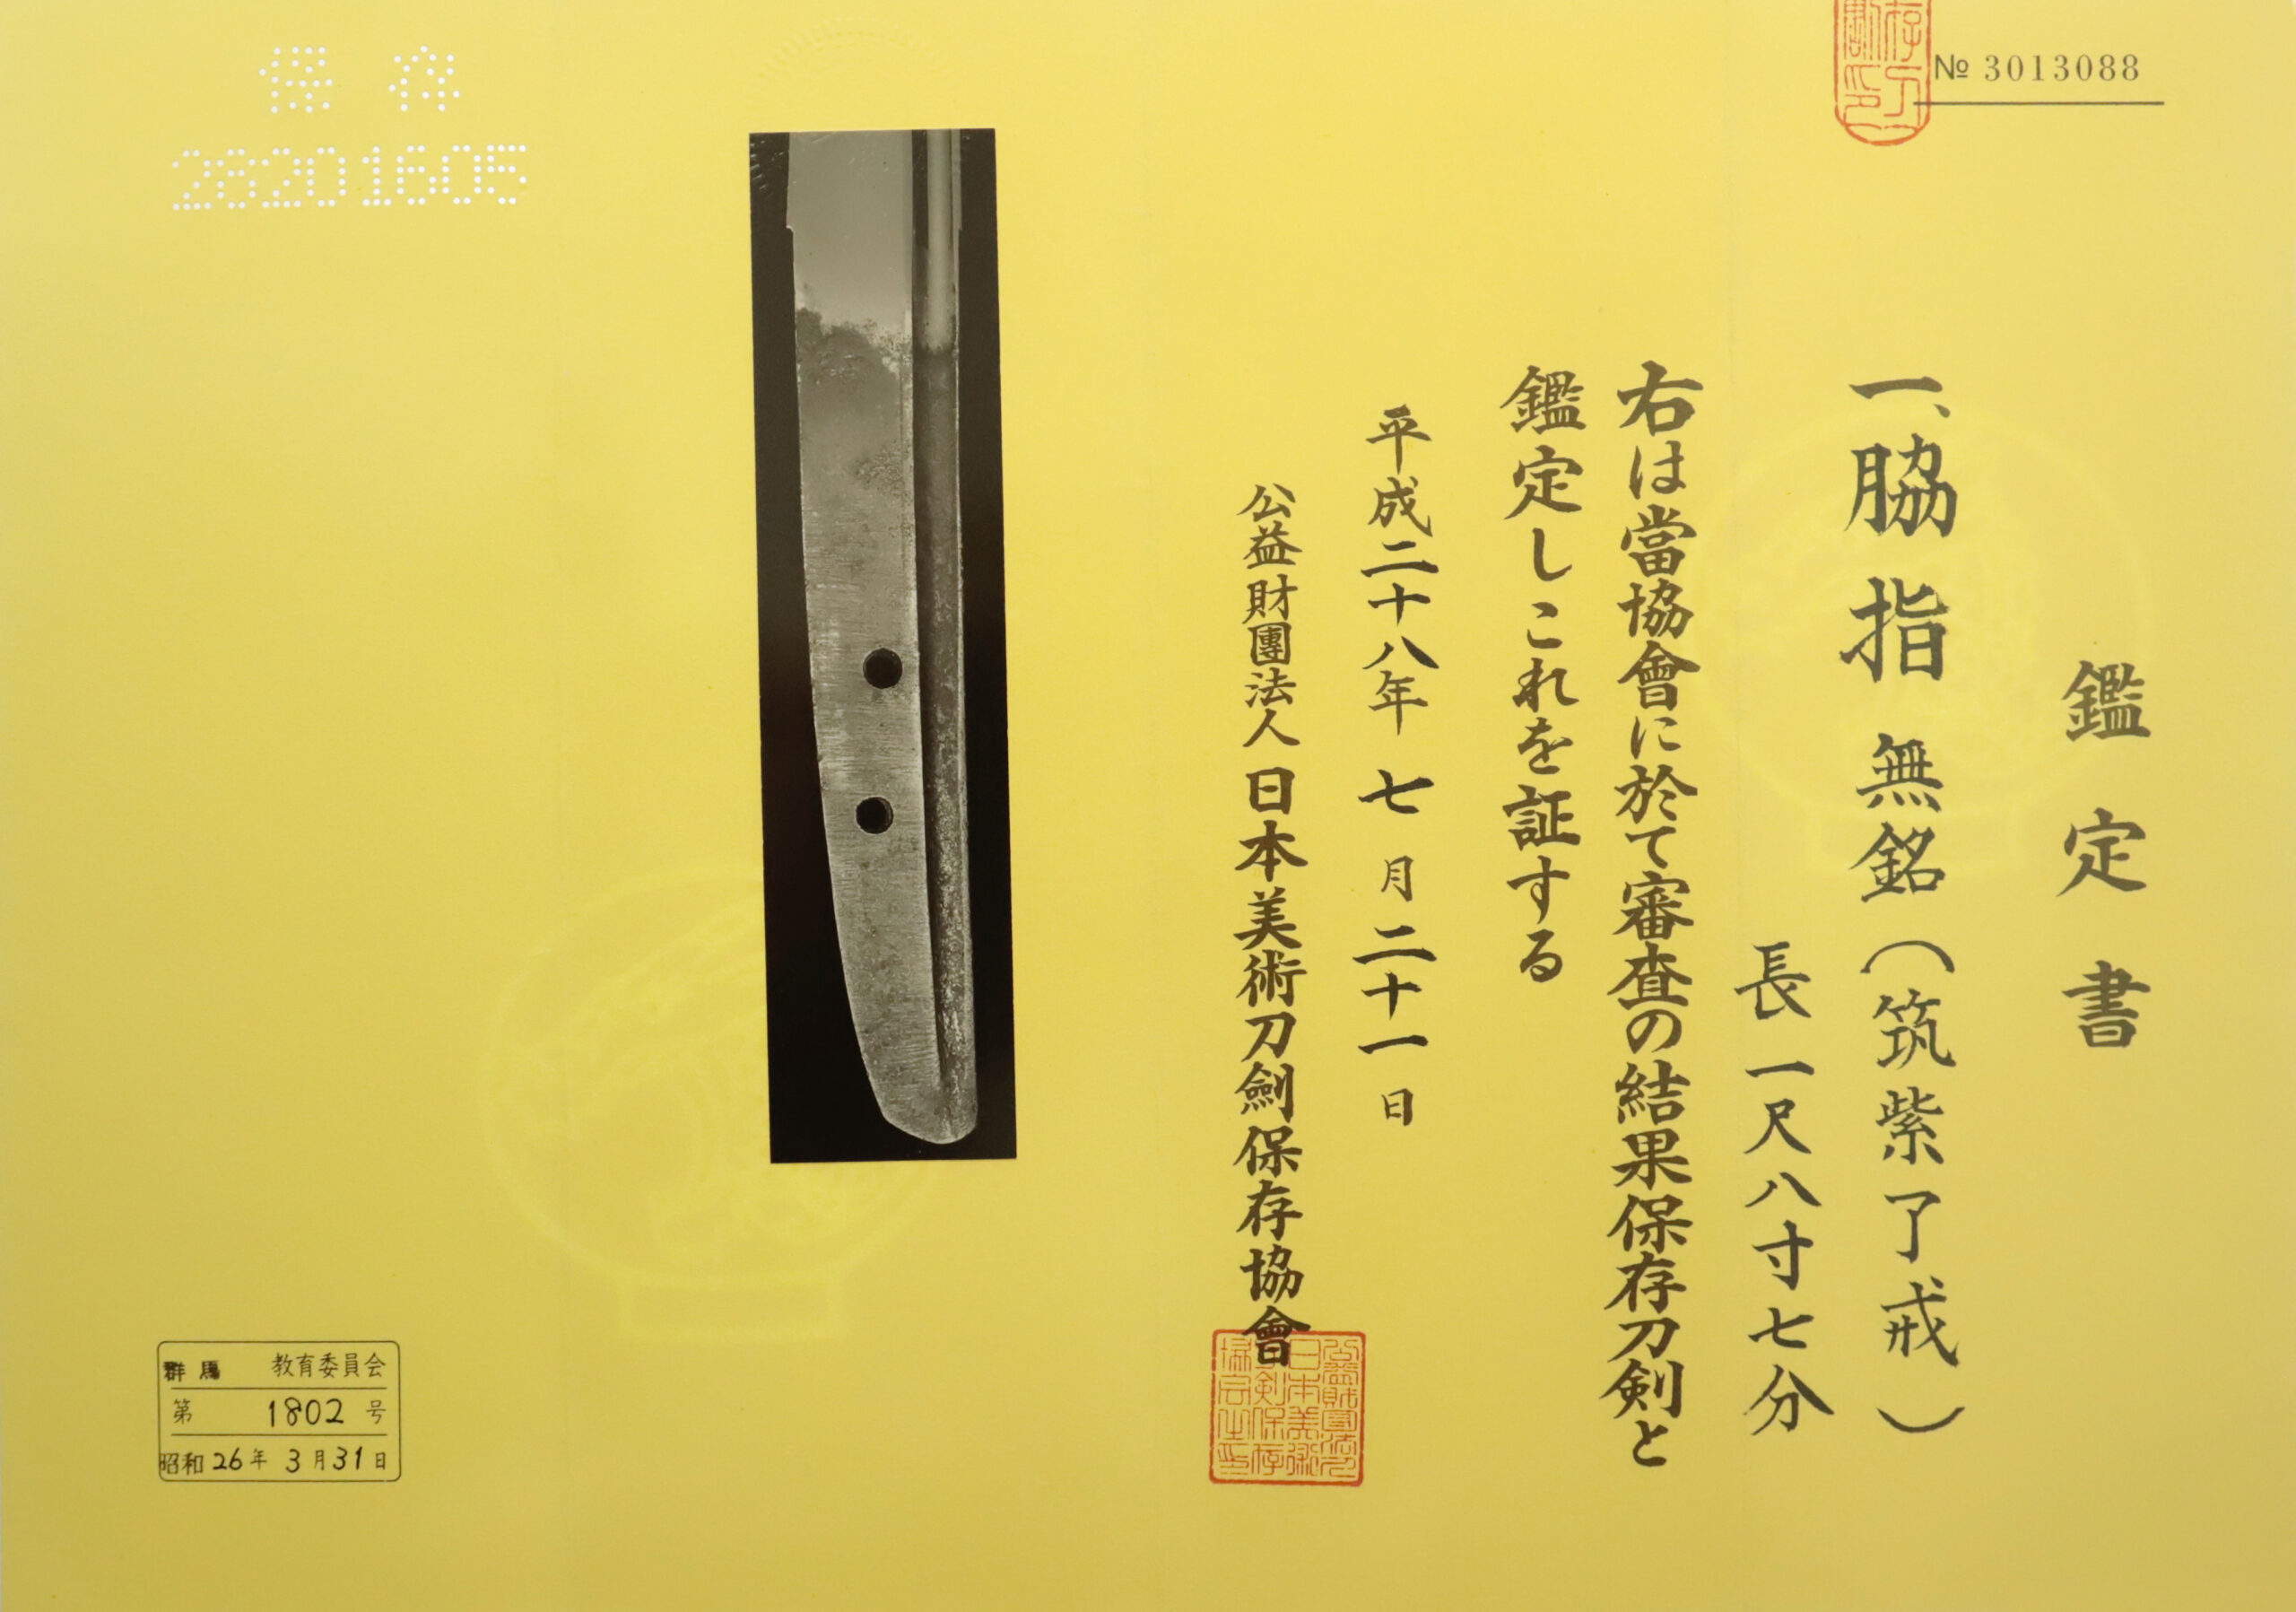 鑑定書
一、脇指 無銘(筑紫了戒)
長一尺八寸七分
右は當協會に於て審査の結果保存刀剣と
鑑定しこれを証する
平成二十八年 七月 二十一日
公益財團法人 日本美術刀劍保存協會
№ 3013088
保存
28201605
群馬 教育委員会
第 1802 号
昭和26年 3月31日